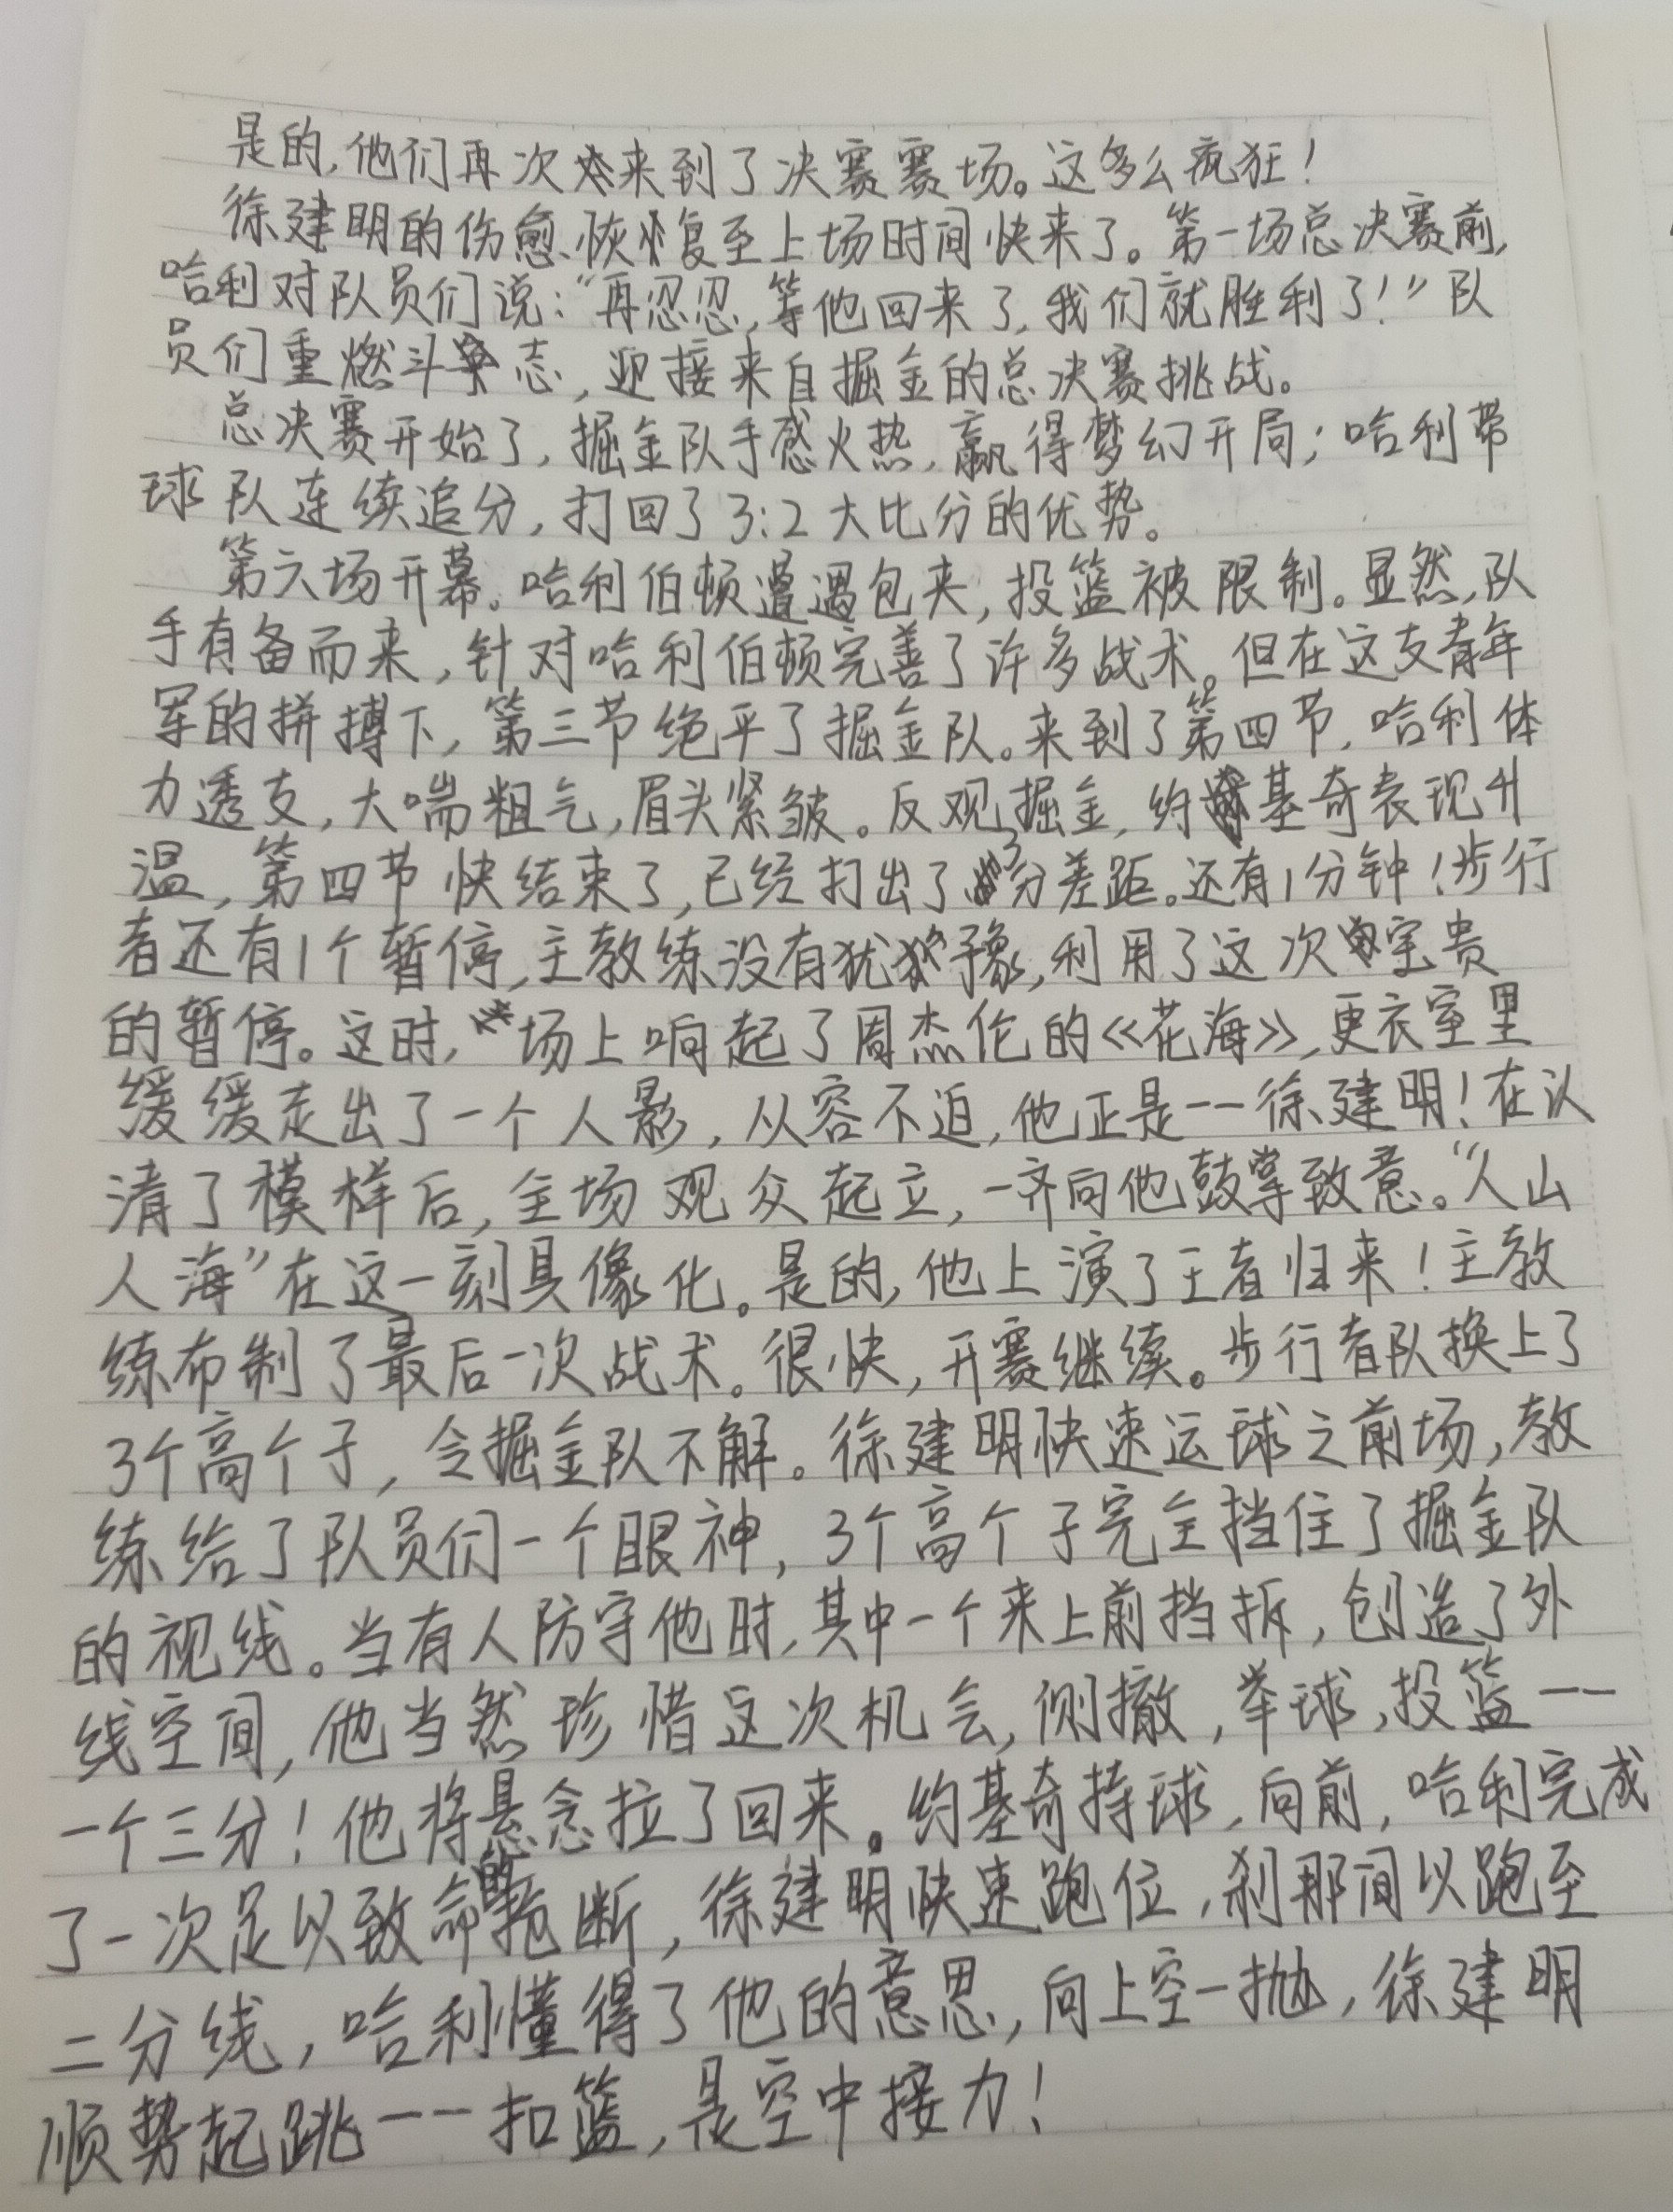 是的,他们再次来到了决赛赛场。这多么疯狂!
徐建明的伤愈恢复至上场时间快来了。第一场总决赛前,
哈利对队员们说:“再忍忍,等他回来了,我们就胜利了!”队
员们重燃斗志,迎接来自掘金的总决赛挑战。
总决赛开始了,掘金队手感火热,赢得梦幻开局;哈利带
球队连续追分,打回了3:2大比分的优势。
第六场开幕。哈利伯顿遭遇包夹,投篮被限制。显然,队
手有备而来,针对哈利伯顿完善了许多战术。但在这支青年
军的拼搏下,第三节绝平了掘金队。来到了第四节,哈利体
力透支,大喘粗气,眉头紧皱。反观掘金,约基奇表现升
温,第四节快结束了,已经打出了3分差距。还有1分钟!步行
者还有1个暂停,主教练没有犹豫,利用了这次宝贵
的暂停。这时,场上响起了周杰伦的《花海》,更衣室里
缓缓走出了一个人影,从容不迫,他正是——徐建明!在认
清了模样后,全场观众起立,一齐向他鼓掌致意。“人山
人海”在这一刻具像化。是的,他上演了王者归来!主教
练布制了最后一次战术。很快,开赛继续。步行者队换上了
3个高个子,令掘金队不解。徐建明快速运球之前场,教
练给了队员们一个眼神,3个高个子完全挡住了掘金队
的视线。当有人防守他时,其中一个来上前挡拆,创造了外
线空间,他当然珍惜这次机会,侧撤,举球,投篮——
一个三分!他将悬念拉了回来。约基奇持球,向前,哈利完成
了一次足以致命的抢断,徐建明快速跑位,刹那间以跑至
二分线,哈利懂得了他的意思,向上空一抛,徐建明
顺势起跳——扣篮,是空中接力!